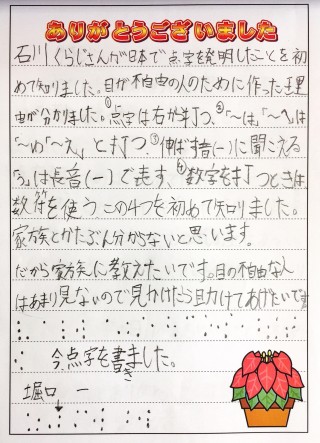 ありがとうございました
石川くらじさんが日本で点字を発明したことを初
めて知りました。目が不自由の人のために作った理
由が分かりました。①点字は右から打つ、②「〜は」「〜へ」は
「〜わ」「〜え」と打つ③伸ばす音(ー)に聞こえる
「う」は長音(ー)で表す、④数字を打つときは
数符を使うこの4つを初めて知りました。
家族とかたぶん分からないと思います。
だから家族に教えたいです。目の不自由な人
はあまり見ないので見かけたら助けてあげたいです
今点字を書きました。
き
堀口 一